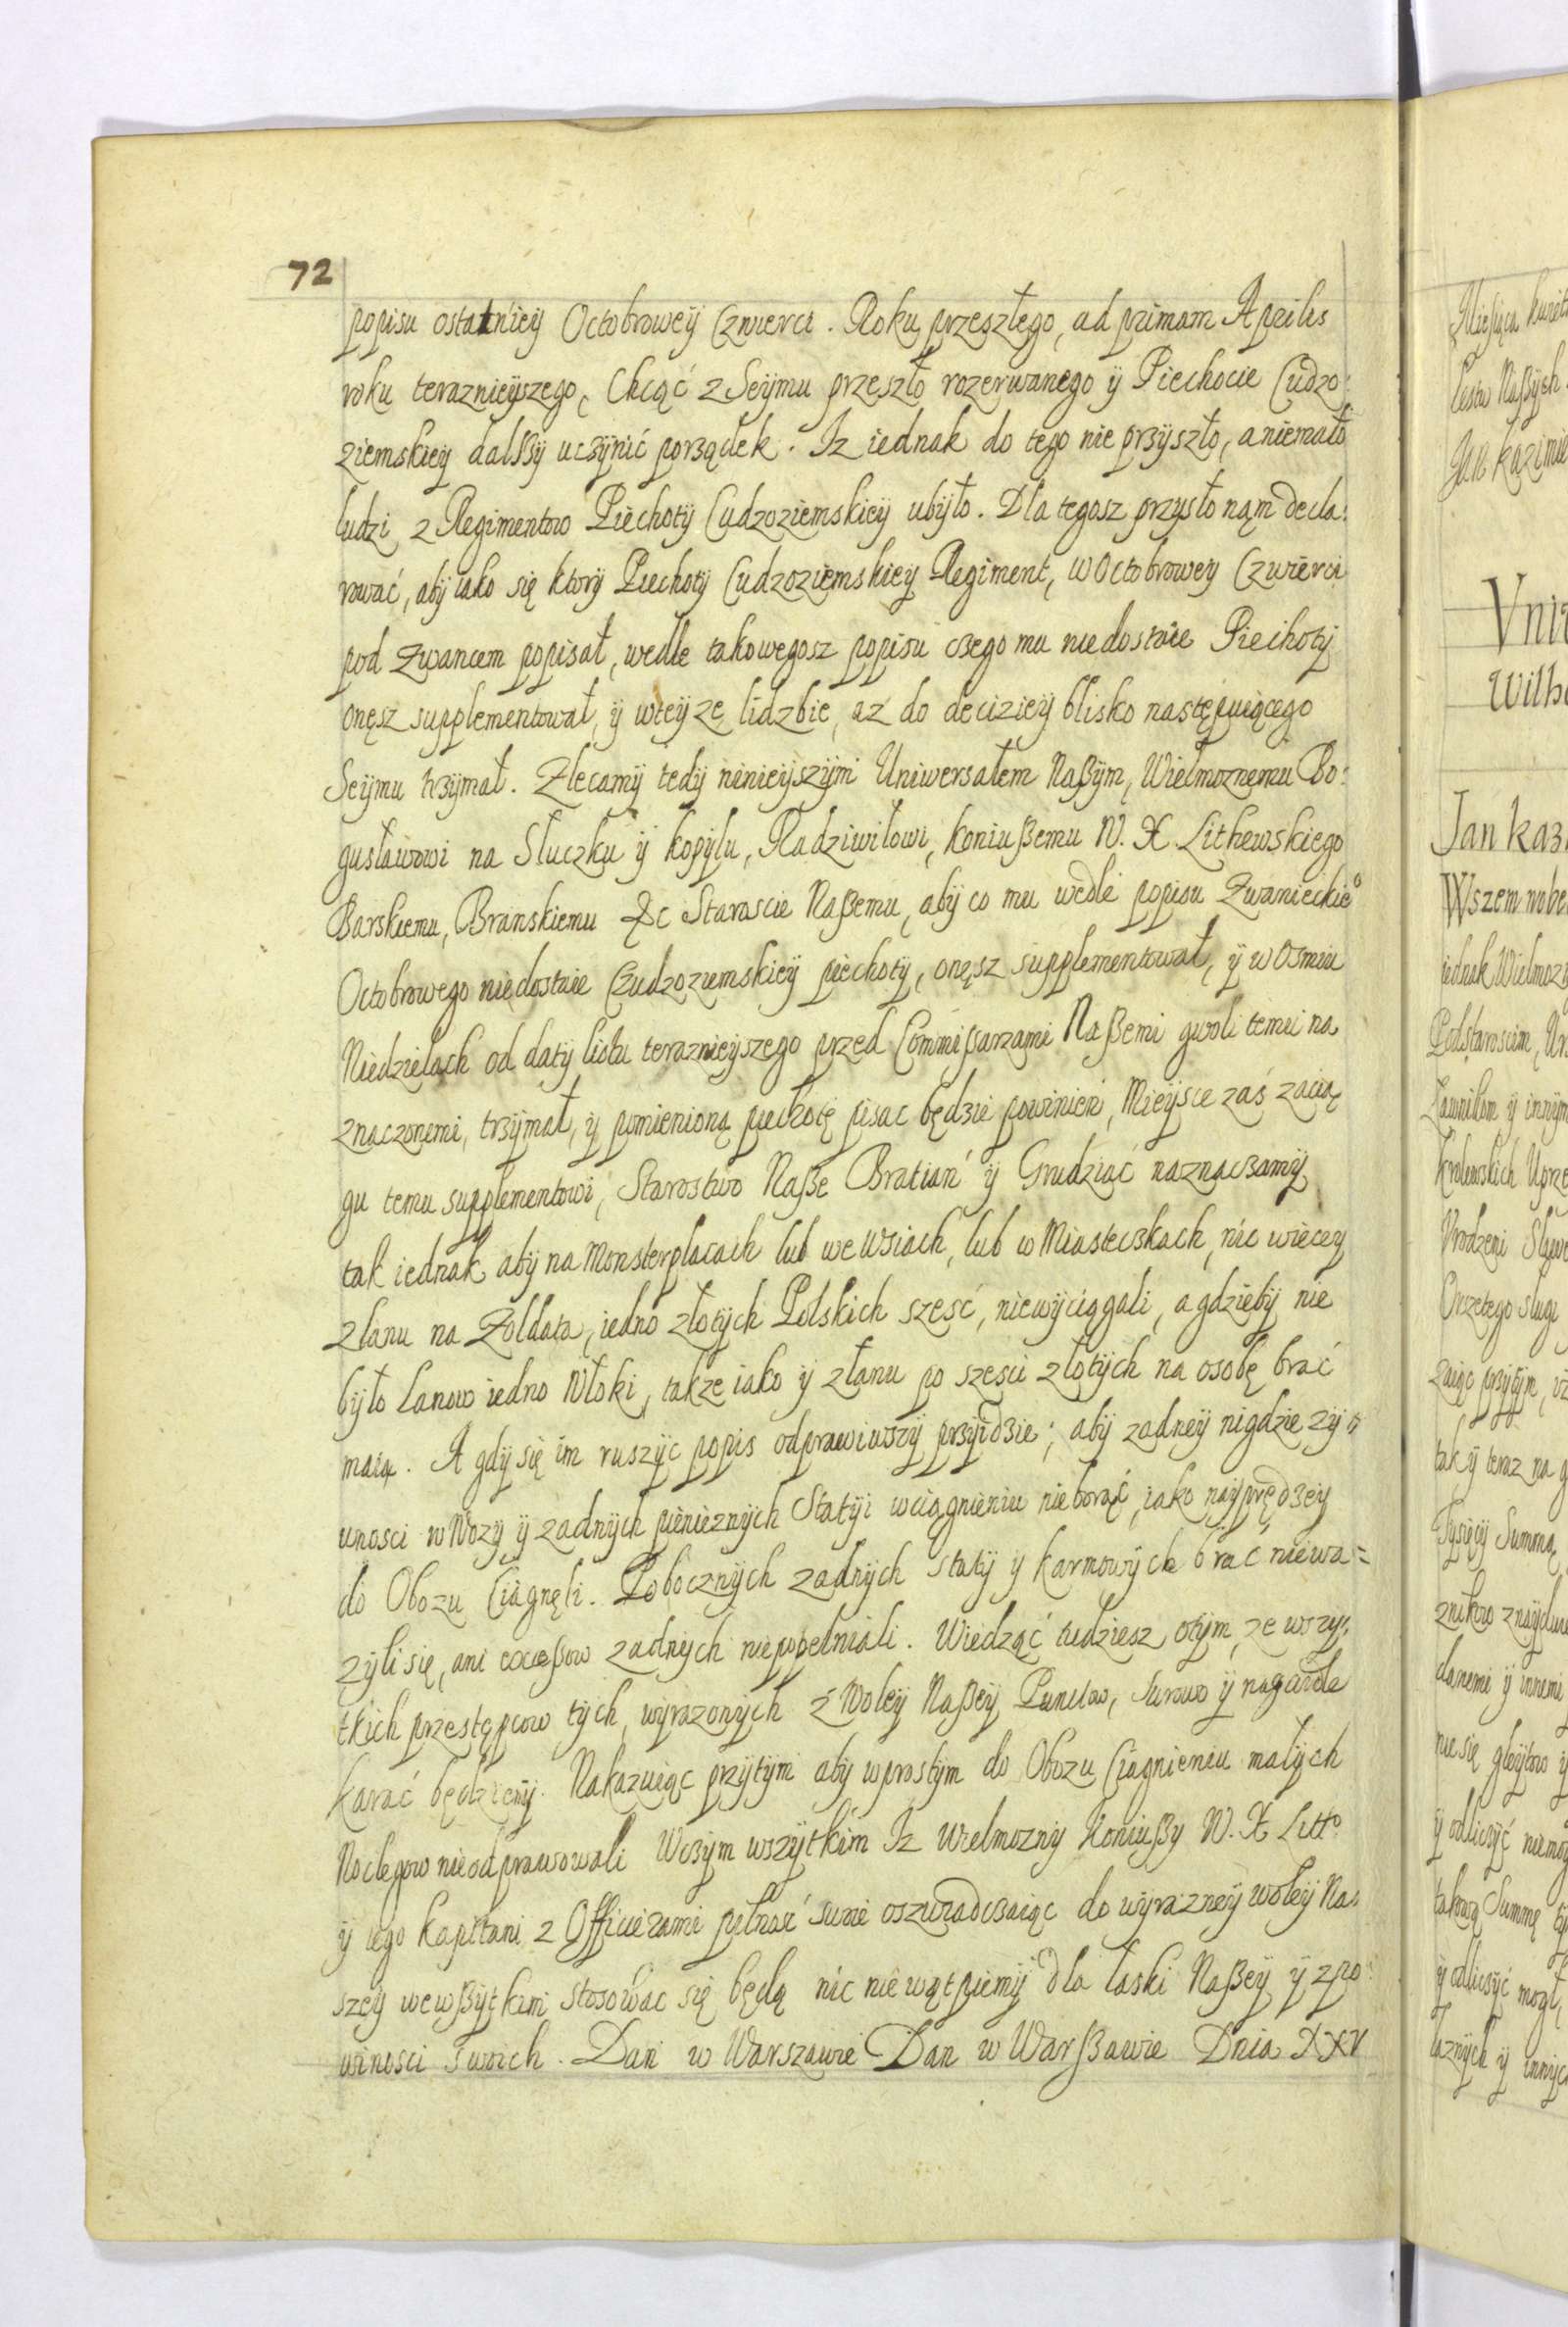 72
popisu ostatniey Octobrowey Czwierci. Roku przeszłego, ad primam Aprilis
roku teraznieyszego, Chcąć z Seymu przeszło rozerwanego ÿ Piechocie Cudzo:
ziemskiey dalßy uczynić porządek. Iz iednak do tego nie przyszło, a niemało
ludzi z Regimentow Piechoty Cudzoziemskiey ubyło. Dla tegosz przysło nąm decla:
rować, aby iako się ktory Piechoty Cudzoziemskiey Regiment, w Octobrowey Czwierci
pod Zwancem popisał, wedle takowegosz popisu czego mu niedostaie Piechoty
onęsz supplementował, ÿ wteyze lidzbie, aż do deciziey blisko następuiącego
Seymu trzymał. Zlecamy tedy ninieyszym Uniwersałem Naßym, Wielmoznemu Bo:
gusławowi na Słuczku ÿ kopylu, Radziwiłowi, koniußemu W. X. Lithewskiego
Barskiemu, Branskiemu &c Staroscie Naßemu, aby co mu wedle popisu Zwanieckie°
Octobrowego niedostaie Czudzoziemskiey piechoty, onęsz supplementował, ÿ w Osmiu
Niedzielach od daty listu teraznieyszego przed Commißarzami Naßemi gwoli temu na
znaczonemi, trzymał, y pomienioną piechotę pisac będzie powinien, Mieysce zaś zacią
gu temu supplementowi, Starostwo Naße Bratian ÿ Grudziąć naznaczamy
tak iednak aby na Monsterplacach lub we Wsiach, lub w Miasteczkach, nic więcey
z łanu na Zołdata, iedno złotych Polskich szesć, niewyciągali, a gdzieby nie
było Lanow iedno Włoki, takze iako ÿ z łanu po szesci złotych na osobę brać
maią. A gdy się im ruszyc popis odprawiwszy przyidzie; aby zadney nigdzie zy=
wnosci w Wozy ÿ zadnych pienieznych Statyi wciągnieniu nie borąć, iako nayprędzey
do Obozu Ciągnęli. Pobocznych zadnych staty y karmowych brac niewa=
zyli się, ani excessow zadnych niepopełniali. Wiedząć tudziesz otym, ze wszy:
tkich przestępcow tych, wyrazonych z Woley Naßey Punctow, surowo ÿ na gardle
karać będziemy. Nakazuiąc przytym aby w prostym do Obozu Ciągnieniu małych
Noclegow nieodprawowali W czym wszytkim Iz Wielmozny Koniußy W. X. Litt°
ÿ iego kapitani z Officierami pełnosć swoie oszwiadczaiąc do wyrazney woley Na:
szey we wßytkim stosowac się będą nic nie wątpiemy dla łaski Naßey ÿ z po:
winosci swoich. Dan w Warszawie Dan w Warßawie Dnia XXV